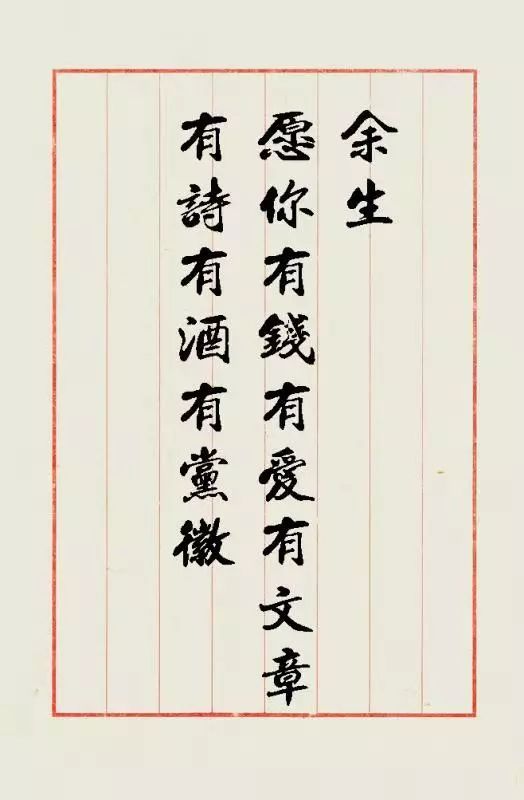 余生
愿你有錢有愛有文章
有詩有酒有黨徽